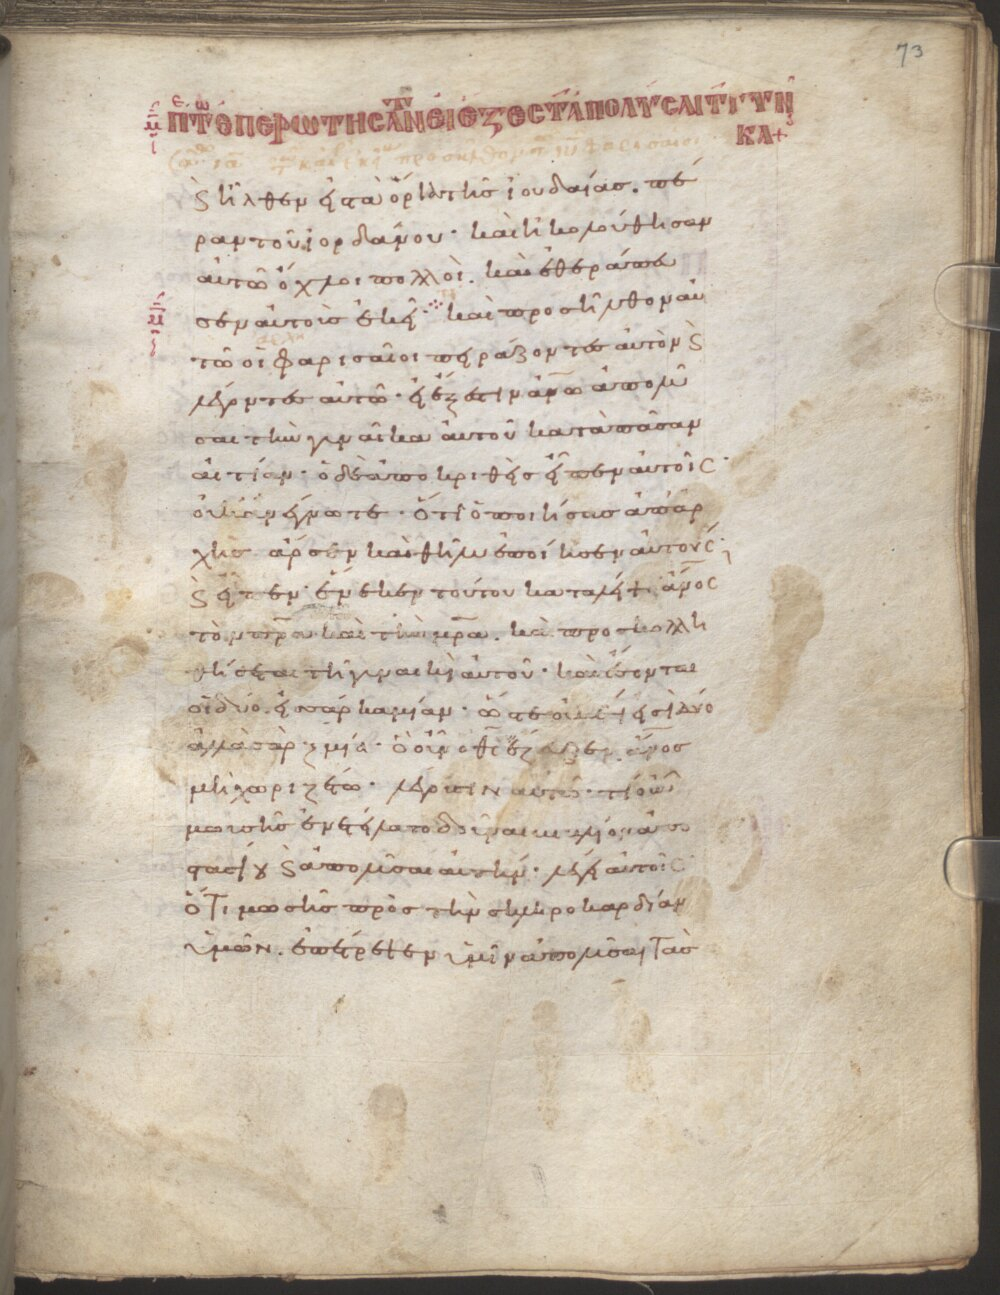 73
ΠΕΡΙ ΤΩΝ ΕΠΕΡΩΤΗΣΑΝΤΩΝ ΕΙ ΕΞΕΣΤΙ ΑΠΟΛΥΣΑΙ ΤΗΝ ΓΥΝΑΙ
ΚΑ+
ϛ ἦλθεν εἰς τὰ ὅρια τῆς ἰουδαίας. πέ
ραν τοῦ ἰορδάνου· καὶ ἠκολούθησαν
αὐτῶ ὄχλοι πολλοὶ. καὶ ἐθεράπευ
σεν αὐτοὺς ἐκεῖ· καὶ προσῆλθον αὐ
τῶ οἱ φαρισαῖοι πειράζοντες αὐτὸν ϛ
λέγοντες αὐτῶ· εἰ ἔξεστιν ἀνω ἀπολῦ
σαι τὴν γυναῖκα αὐτοῦ κατὰ πᾶσαν
αἰτίαν· ὁ δὲ ἀποκριθεὶς εἶπεν αὐτοῖς·
οὐκ ἀνέγνωτε· ὅτι ὁ ποιήσας ἀπαρ
χῆς ἄρσεν καὶ θῆλυ ἐποίησεν αὐτούς·
ϛ εἶπεν· ἕνεκεν τούτου καταλείψει ἀνος
τὸν πρα καὶ τὴν μρα. καὶ προσκολλη
θήσεται τῆ γυναικὶ αὐτοῦ· καὶ ἔσονται
οἱ δύο εἰς σάρκα μίαν· ὥστε οὐκέτι εἰσὶ δύο
ἀλλὰ σὰρξ μία· ὃ οὖν ὁ θς ἔζευξεν ἀνος
μὴ χωριζέτω· λέγουσιν αὐτῶ· τί οὖν
μωυσῆς ἐνετείλατο δοῦναι βιβλίον ἀπο
στασίου ϛ ἀπολῦσαι αὐτήν· λέγει αὐτοῖς
ὅτι μωσῆς πρὸς τὴν σκληροκαρδίαν
ὑμῶν. ἐπέτρεψεν ὑμῖν ἀπολῦσαι τὰς